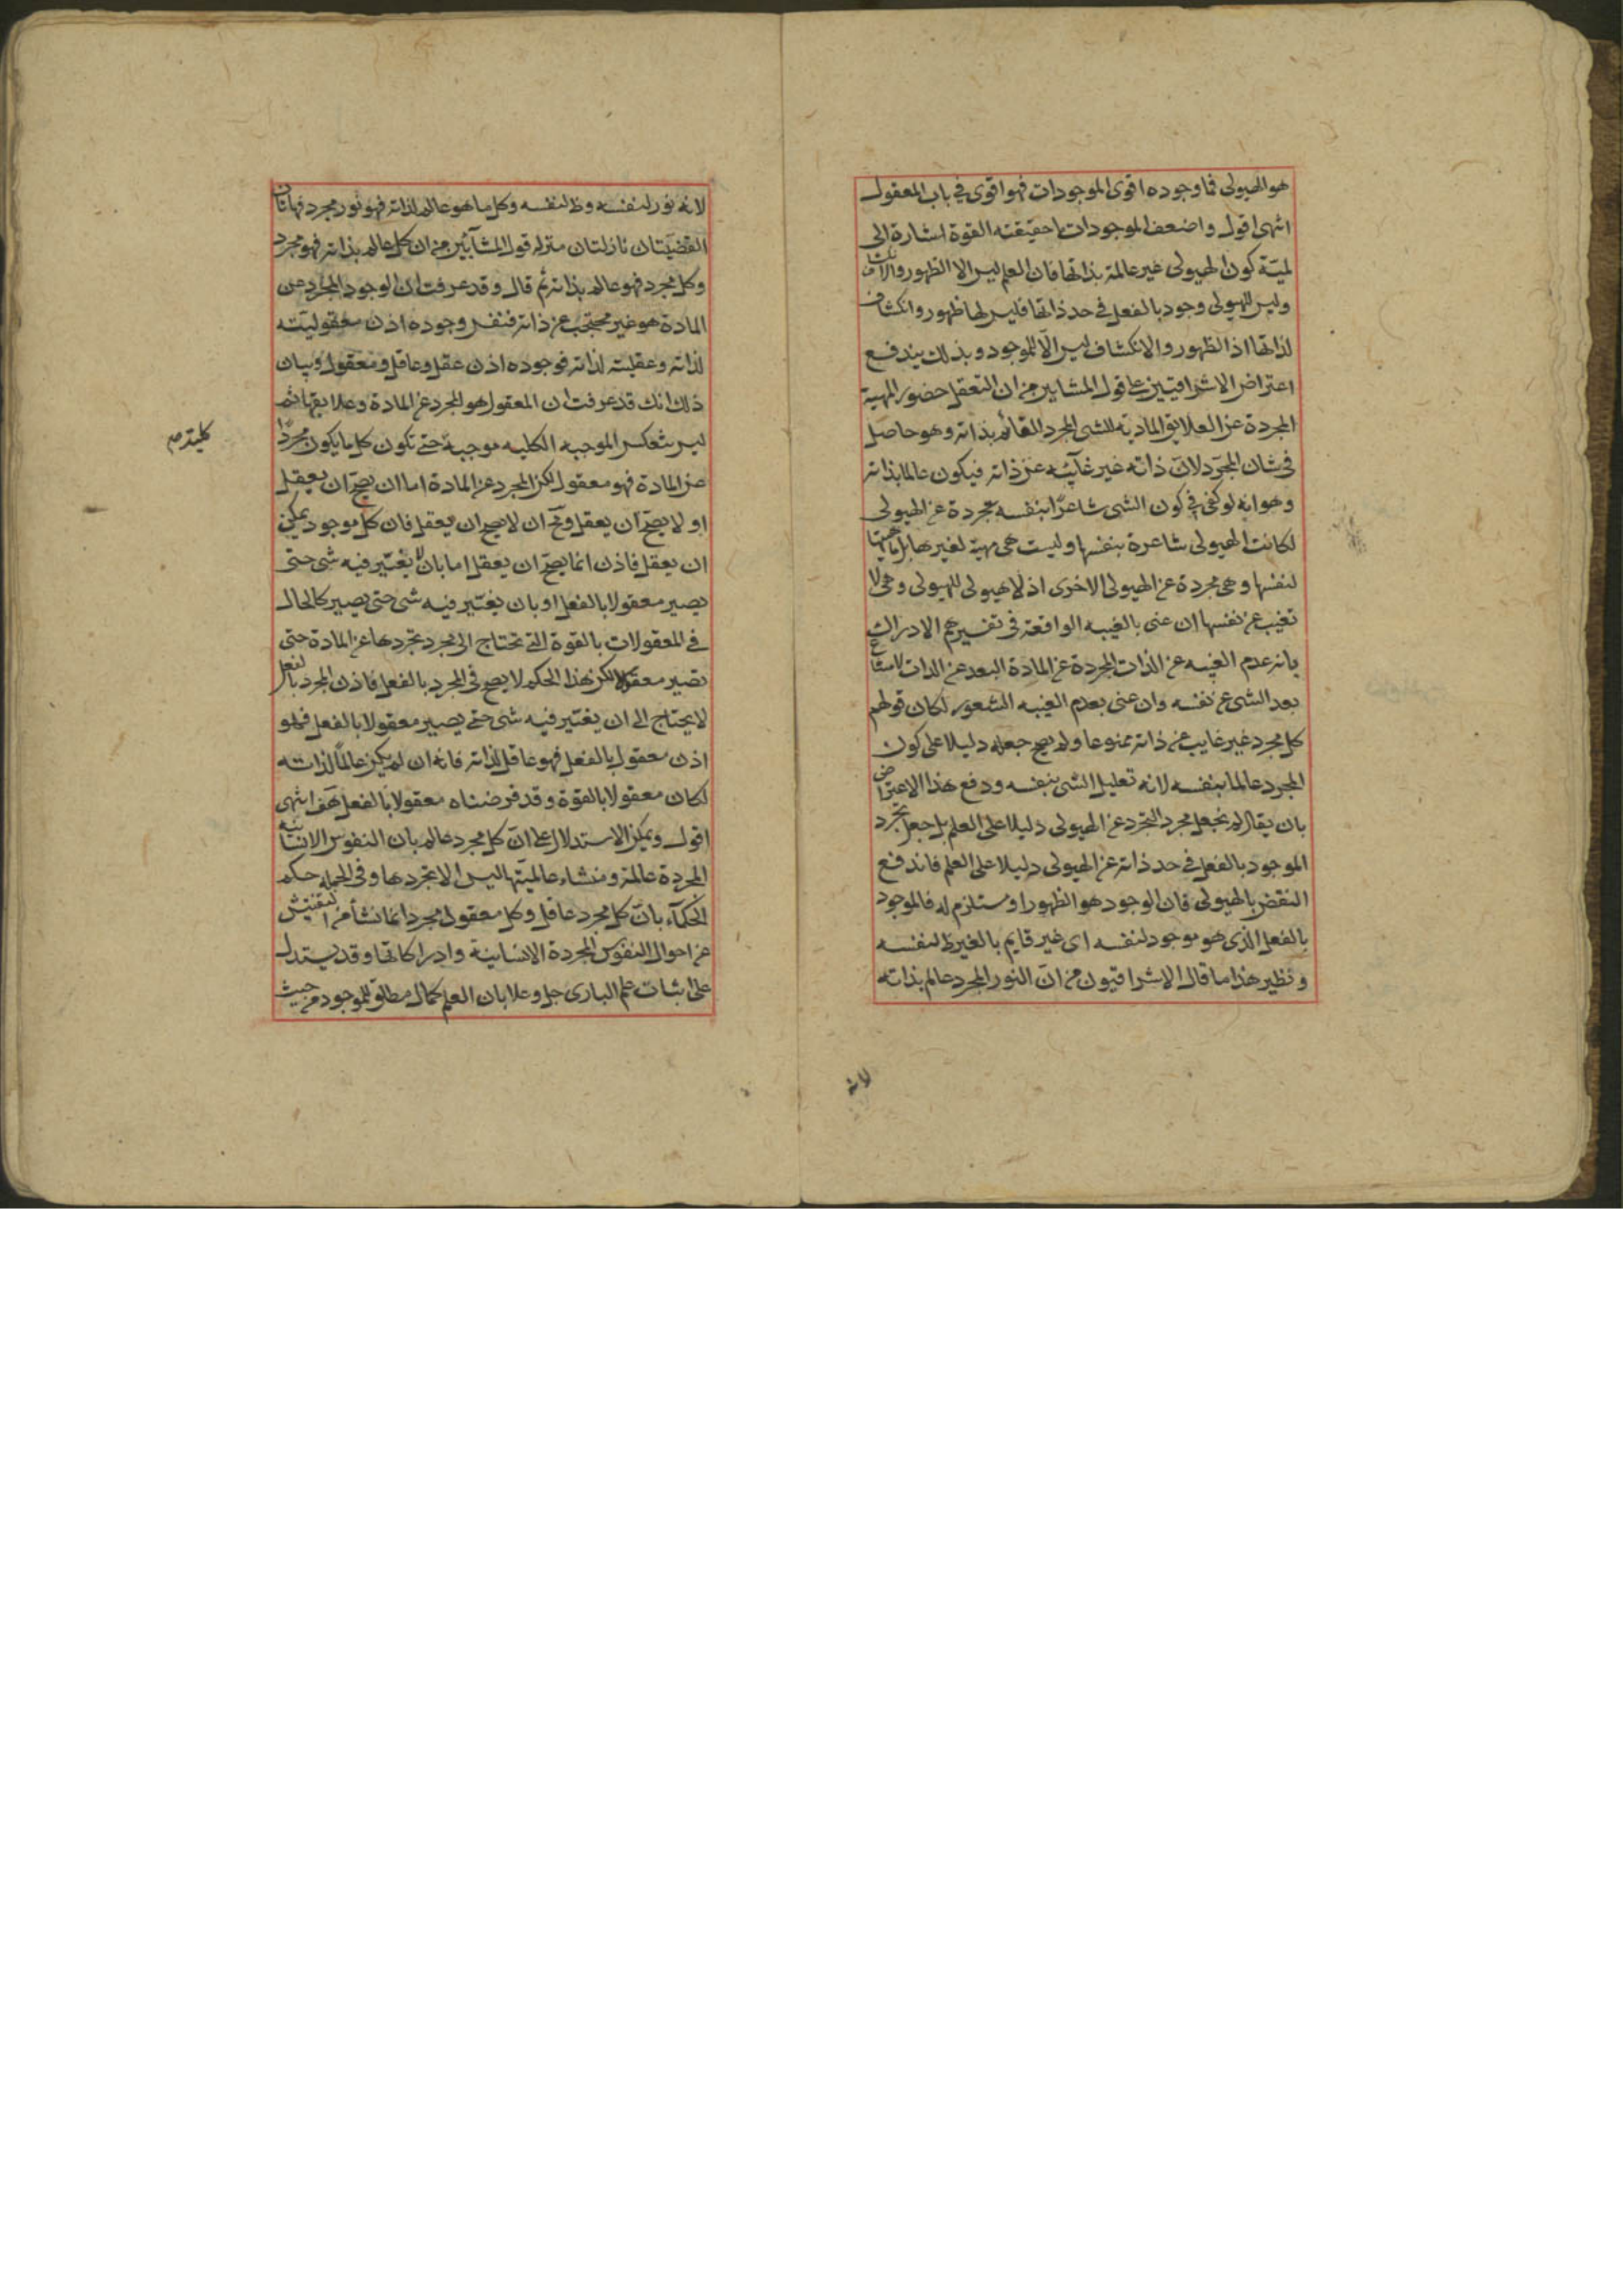 هو الهيولى فما وجوده اقوى الموجودات فهو اقوى في باب المعقول
انتهى اقول واضعف الموجودات احقيقته القوة اشارة الى
لميّة كون الهيولى غير عالمة بذاتها فان العلم ليس الا الظهور والانكشاف
وليس للهيولى وجود بالفعل في حد ذاتها فليس لها ظهور وانكشاف
لذاتها اذ الظهور والانكشاف ليس الّا للموجود وبذلك يندفع
اعتراض الاشراقيين على قول المشايين من ان التعقل حضور المهية
المجردة عن العلايق المادية للشئ المجرد القائم بذاته وهو حاصل
في شان المجرّد لانّ ذاته غير غآيبة عن ذاته فيكون عالما بذاته
وهو انه لو كفى في كون الشى شاعرًا بنفسه تجرده عن الهيولى
لكانت الهيولى شاعرة بنفسها وليست هى مهية لغيرها بل ماهيتها
لنفسها وهى مجردة عن الهيولى الاخرى اذ لا هيولى للهيولى وهى لا
تغيب عن نفسها ان عنى بالغيبه الواقعة في تفسيرهم الادراك
بانه عدم الغيبه عن الذات المجردة عن المادة البعد عن الذات لامتناع
بعد الشى عن نفسه وان عنى بعدم الغيبه الشعور لكان قولهم
كل مجرد غير غايب عن ذاته ممنوعا ولم يصح جعله دليلا على كون
المجرد عالما بنفسه لانه تعليل الشى بنفسه ودفع هذا الاعتراض
بان يقال لم نجعل مجرد التجرد عن الهيولى دليلا على العلم بل جعل تجرد
الموجود بالفعل في حد ذاته عن الهيولى دليلا على العلم فاندفع
النقض بالهيولى فان الوجود هو الظهور او مستلزم له فالموجود
بالفعل الذى هو موجود لنفسه اى غير قايم بالغير ظ لنفسه
ونظير هذا ما قال الاشراقيون من انّ النور المجرد عالم بذاته
لانه
لانه نور لنفسه وظ لنفسه وكل ما هو عالم لذاته فهو نور مجرد فهاتان
القضيّتان نازلتان منزله قول المشآئين من ان كل عالم بذاته فهو مجرد
وكل مجرد فهو عالم بذاته ثم قال وقد عرفت ان الوجود المجرد عن
المادة هو غير محتجب عن ذاته فنفس وجوده اذن معقوليّته
لذاته وعقليته لذاته فوجوده اذن عقل وعاقل ومعقول وبيان
ذلك انك قد عرفت ان المعقول هو المجرد عن المادة وعلايقها ثم
ليس تنعكس الموجبه الكليه موجبة حتى تكون كل ما يكون مجردًا
كلية صح
عن المادة فهو معقول لكن المجرد عن المادة اما ان يصحّ ان يعقل
او لا يصحّ ان يعقل ومح ان لا يصح ان يعقل فان كل موجود يمكن
ان يعقل فاذن انما يصحّ ان يعقل اما بان لا يغتير فيه شى حتى
يصير معقولا بالفعل او بان يغتير فيه شى حتى يصير كالحال
في المعقولات بالقوة التى تحتاج الى مجرد يجردها عن المادة حتى
تصير معقولا لكن هذا الحكم لا يصح في المجرد بالفعل فاذن المجرد بالفعل
لا يحتاج الى ان يغتير فيه شى حتى يصير معقولا بالفعل فهو
اذن معقول بالفعل فهو عاقل لذاته فانه ان لم يكن عالمًا لذاته
لكان معقولا بالقوة وقد فرضناه معقولا بالفعل هف انتهى
اقول ويمكن الاستدلال على انّ كل مجرد عالم بان النفوس الانسانيه
المجردة عالمة ومنشاء عالميّتها ليس الا تجردها وفى الجمله حكم
الحكماء بانّ كل مجرد عاقل وكل معقول مجرد انما نشأ من التفتيش
عن احوال النفوس المجردة الانسانية وادراكاتها وقد يستدل
على اثبات علم البارى جل وعلا بان العلم كمال مطلق للموجود من حيث